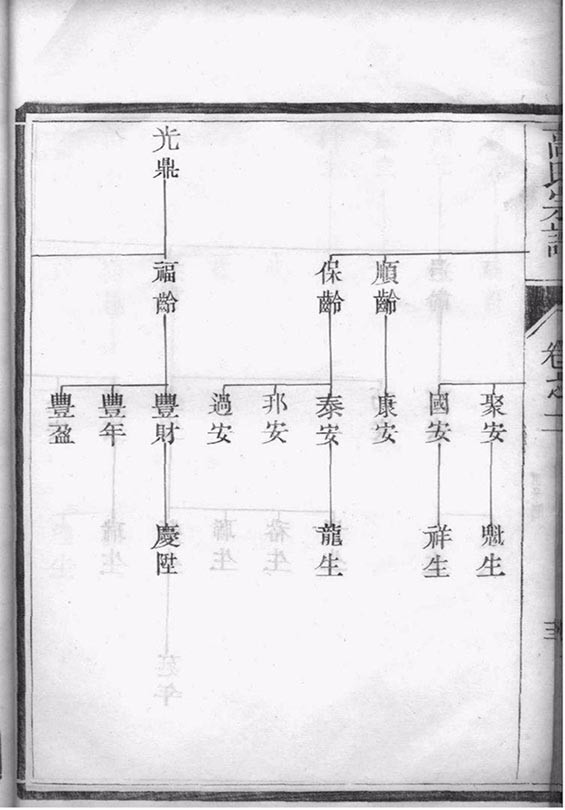 高氏宗譜
卷之二
聚安
魁生
國安
祥生
順齡
康安
保齡
泰安
龍生
邦安
過安
光鼎
福齡
豐財
慶陞
豐年
豐盈